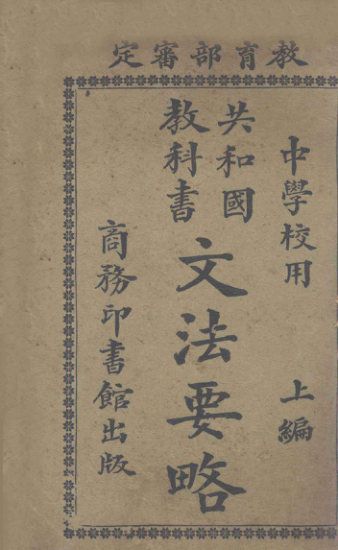 教育部審定
中學校用 上編
共和國
教科書
文法要略
商務印書館出版